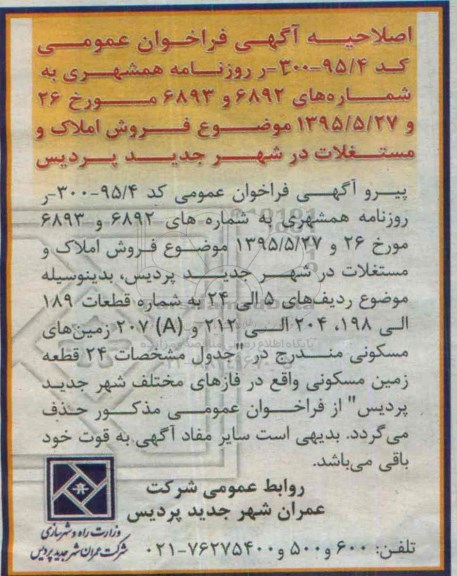 اصلاحیه آگهی فراخوان عمومی
کد ۹۵/۴-۳۰۰-ر روزنامه همشهری به
شماره‌های ۶۸۹۲ و ۶۸۹۳ مورخ ۲۶
و ۱۳۹۵/۵/۲۷ موضوع فروش املاک و
مستغلات در شهر جدید پردیس
پیرو آگهی فراخوان عمومی کد ۹۵/۴-۳۰۰-ر
روزنامه همشهری به شماره های ۶۸۹۲ و ۶۸۹۳
مورخ ۲۶ و ۱۳۹۵/۵/۲۷ موضوع فروش املاک و
مستغلات در شهر جدید پردیس، بدینوسیله
موضوع ردیف‌های ۵ الی ۲۴ به شماره قطعات ۱۸۹
الی ۱۹۸، ۲۰۴ الی ۲۱۲ و (A) ۲۰۷ زمین‌های
مسکونی مندرج در "جدول مشخصات ۲۴ قطعه
زمین مسکونی واقع در فازهای مختلف شهر جدید
پردیس" از فراخوان عمومی مذکور حذف
می‌گردد. بدیهی است سایر مفاد آگهی به قوت خود
باقی می‌باشد.
روابط عمومی شرکت
عمران شهر جدید پردیس
وزارت راه و شهرسازی
شرکت عمران شهر جدید پردیس
تلفن: ۶۰۰ و ۵۰۰ و ۷۶۲۷۵۴۰۰-۰۲۱